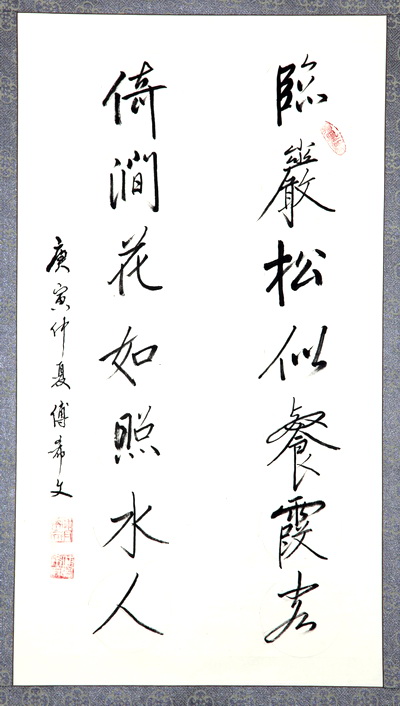 臨巖松似餐霞客
倚澗花如照水人
庚寅仲夏傅希文